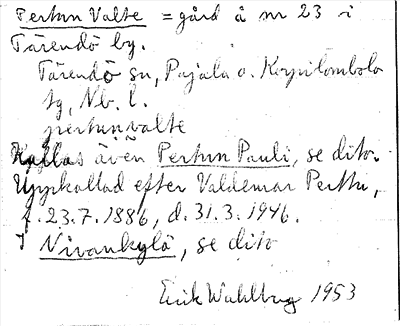 Pertun Valte = gård å nr 23 i
Tärendö by.
Tärendö sn, Pajala o. Korpilombolo
tg, Nb. l.
pertunvalte
Kallas även Pertun Pauli, se dito.
Uppkallad efter Valdemar Perttu,
f. 23.7.1886, d. 31.3.1946.
I Nivankylä, se dito
Erik Wahlberg 1953